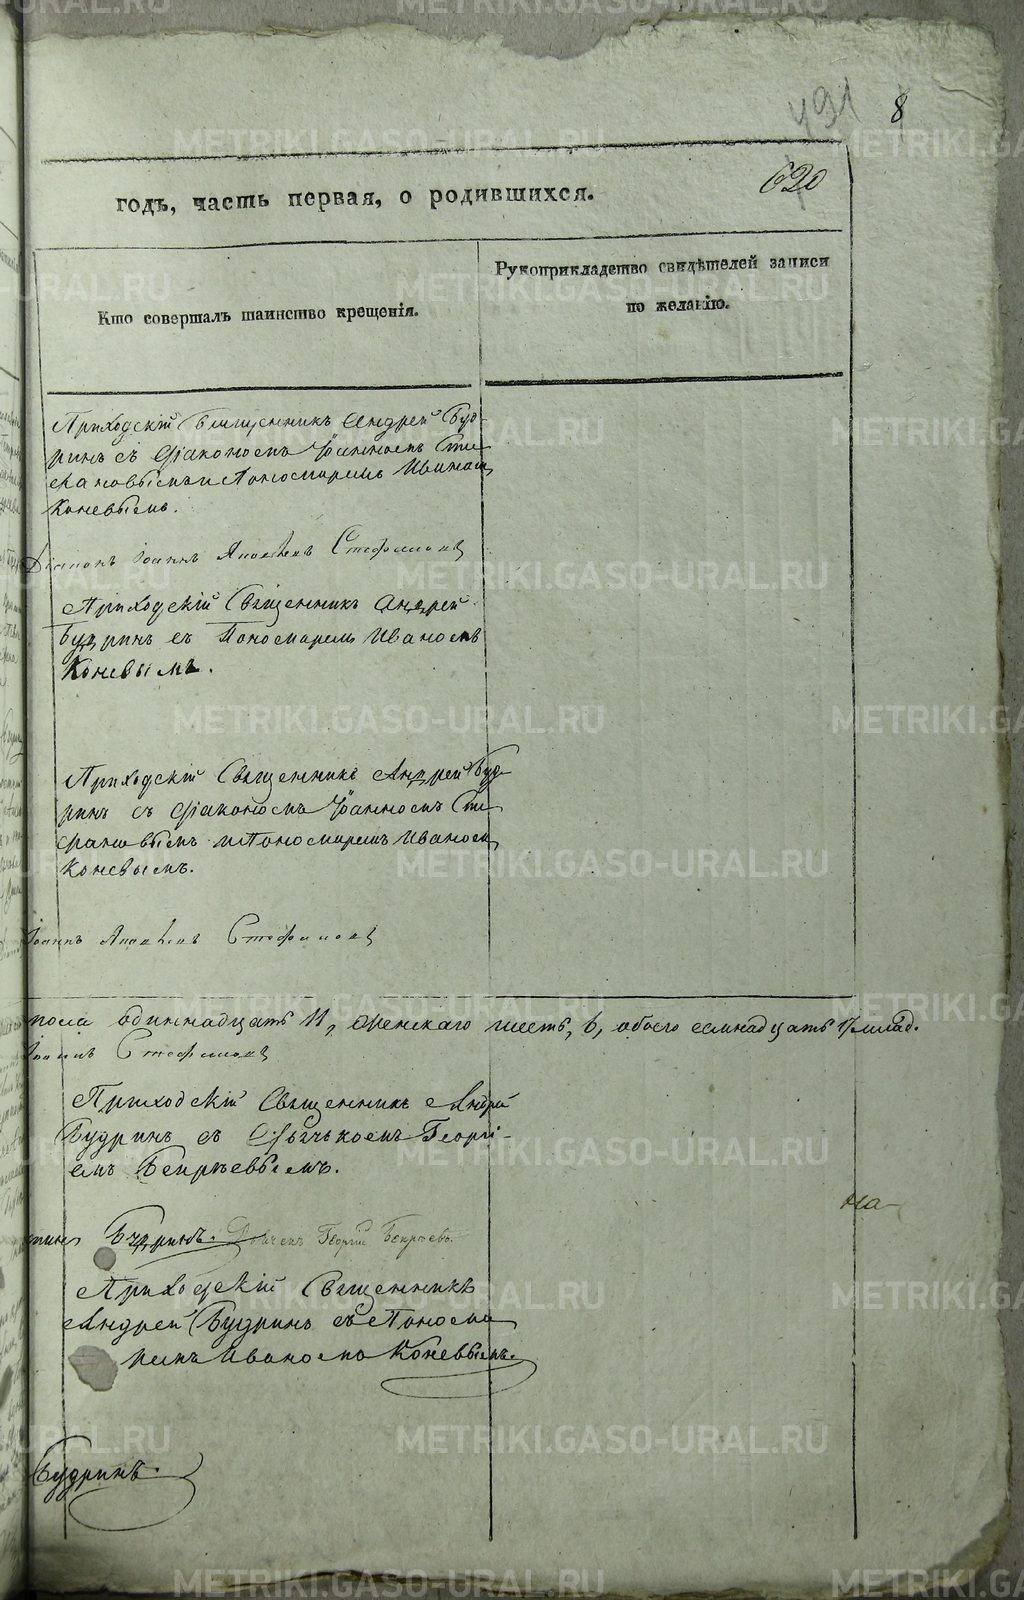 491 8
620
годъ, часть первая, о родившихся.
Кто совершалъ таинство крещенія.
Рукоприкладство свидѣтелей записи
по желанію.
Приходскій Священникъ Андрей Буд-
ринъ съ Діакономъ Іоанномъ Сте
фановымъ и Пономаремъ Иваном
Коневымъ.
Діаконъ Іоаннъ Яковлевъ Стефановъ
Приходскій Священникъ Андрей
Будринъ съ Пономаремъ Иваномъ
Коневымъ.
Приходскій Священникъ Андрей Буд
ринъ съ Діакономъ Іоанномъ Сте
фановымъ и Пономаремъ Иваном
Коневымъ.
Іоаннъ Яковлевъ Стефановъ
пола одиннадцать 11, женскаго шесть, 6, обоего семнадцать 17 млад.
Іоаннъ Стефановъ
Приходскій Священникъ Андрей
Будринъ съ Дьячькомъ Георгі-
емъ
Будринъ. Дьячекъ Георгій
на
Приходскій Священникъ
Андрей Будринъ съ Понома
ремъ Иваномъ Коневымъ.
Будринъ.
METRIKI.GASO-URAL.RU